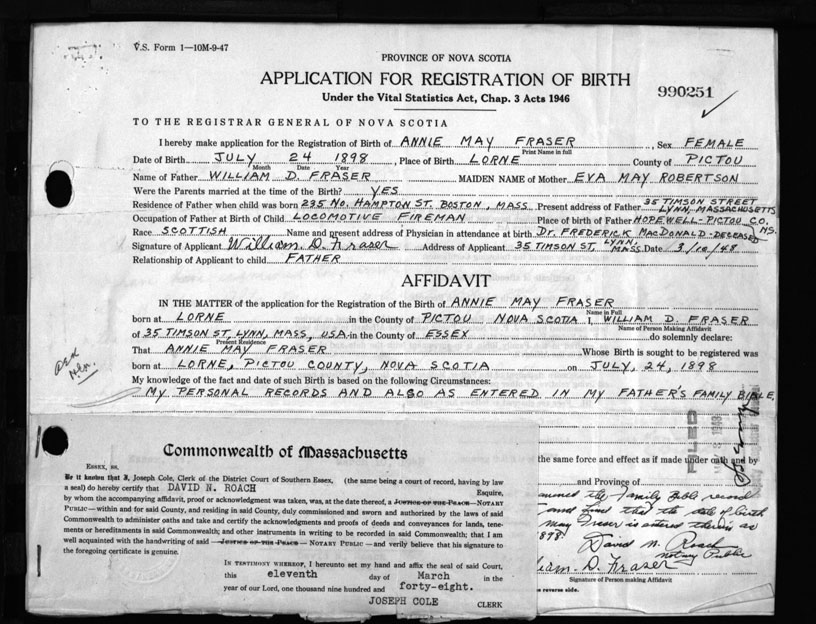 V.S. Form 1—10M-9-47
PROVINCE OF NOVA SCOTIA
APPLICATION FOR REGISTRATION OF BIRTH
990251
Under the Vital Statistics Act, Chap. 3 Acts 1946
TO THE REGISTRAR GENERAL OF NOVA SCOTIA
I hereby make application for the Registration of Birth of ANNIE MAY FRASER, Sex FEMALE
Print Name in full
Date of Birth JULY 24 1898, Place of Birth LORNE County of PICTOU
Month Date Year
Name of Father WILLIAM D. FRASER MAIDEN NAME of Mother EVA MAY ROBERTSON
Were the Parents married at the time of the Birth? YES
Residence of Father when child was born 235 NO. HAMPTON ST. BOSTON, MASS Present address of Father 35 TIMSON STREET LYNN, MASSACHUSETTS
Occupation of Father at Birth of Child LOCOMOTIVE FIREMAN Place of birth of Father HOPEWELL-PICTOU CO. NS.
Race SCOTTISH Name and present address of Physician in attendance at birth DR. FREDERICK MACDONALD-DECEASED
Signature of Applicant William D. Fraser Address of Applicant 35 TIMSON ST. LYNN, MASS Date 3/10/48
Relationship of Applicant to child FATHER
AFFIDAVIT
IN THE MATTER of the application for the Registration of the Birth of ANNIE MAY FRASER
Name in Full
born at LORNE in the County of PICTOU NOVA SCOTIA I, WILLIAM D. FRASER
Name of Person Making Affidavit
of 35 TIMSON ST, LYNN, MASS, USA in the County of ESSEX do solemnly declare:
Present Residence
That ANNIE MAY FRASER Whose Birth is sought to be registered was
born at LORNE, PICTOU COUNTY, NOVA SCOTIA on JULY, 24, 1898
My knowledge of the fact and date of such Birth is based on the following Circumstances:
MY PERSONAL RECORDS AND ALSO AS ENTERED IN MY FATHER'S FAMILY BIBLE.
FILED
the same force and effect as if made under oath and by
and Province of
the Family Bible record
and find that the date of birth
May Fraser is entered therein as
1898.
David N. Roach
Notary Public
William D. Fraser
Signature of Person making Affidavit
reverse side.
Commonwealth of Massachusetts
ESSEX, SS.
Be it known that I, Joseph Cole, Clerk of the District Court of Southern Essex, (the same being a court of record, having by
law a seal) do hereby certify that DAVID N. ROACH
Esquire,
by whom the accompanying affidavit, proof or acknowledgment was taken, was, at the date thereof, a JUSTICE OF THE PEACE—NOTARY
PUBLIC—within and for said County, and residing in said County, duly commissioned and sworn and authorized by the laws of said
Commonwealth to administer oaths and take and certify the acknowledgments and proofs of deeds and conveyances for lands, tene-
ments or hereditaments in said Commonwealth; and other instruments in writing to be recorded in said Commonwealth; that I am
well acquainted with the handwriting of said JUSTICE OF THE PEACE — NOTARY PUBLIC — and verily believe that his signature to
the foregoing certificate is genuine.
IN TESTIMONY WHEREOF, I hereunto set my hand and affix the seal of said Court,
this eleventh day of March in the
year of our Lord, one thousand nine hundred and forty-eight.
JOSEPH COLE CLERK